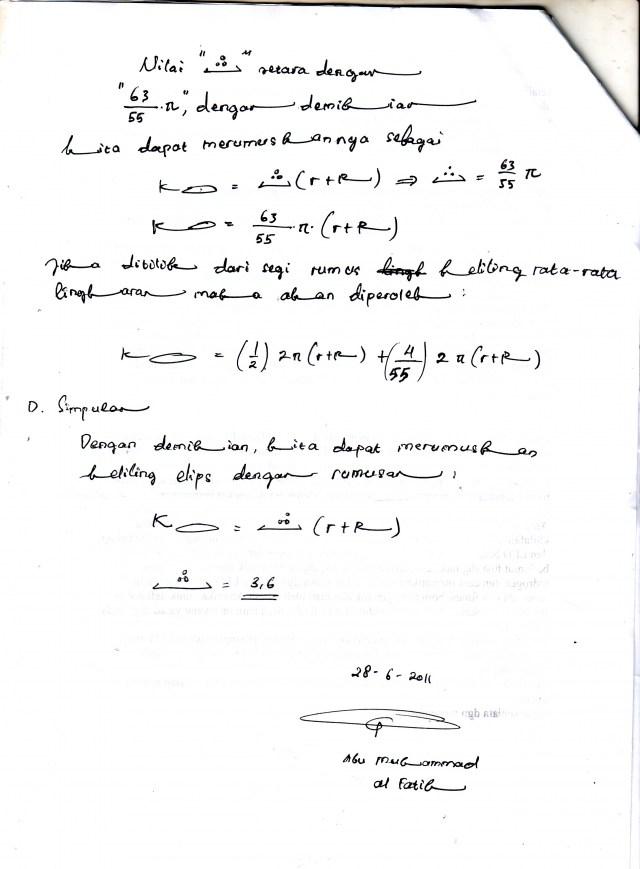 Nilai "ث" setara dengan
"63/55 . π", dengan demikian
kita dapat merumuskannya sebagai
K⬭ = ث (r+R) ⇒ ث = 63/55 π
K⬭ = 63/55 . π . (r+R)
Jika ditilik dari segi rumus keliling rata-rata
lingkaran maka akan diperoleh :
K⬭ = (1/2) 2π (r+R) + (4/55) 2π (r+R)
D. Simpulan
Dengan demikian, kita dapat merumuskan
keliling elips dengan rumusan :
K⬭ = ث (r+R)
ث = 3,6
28-6-2011
Abu Muhammad
al Fatih